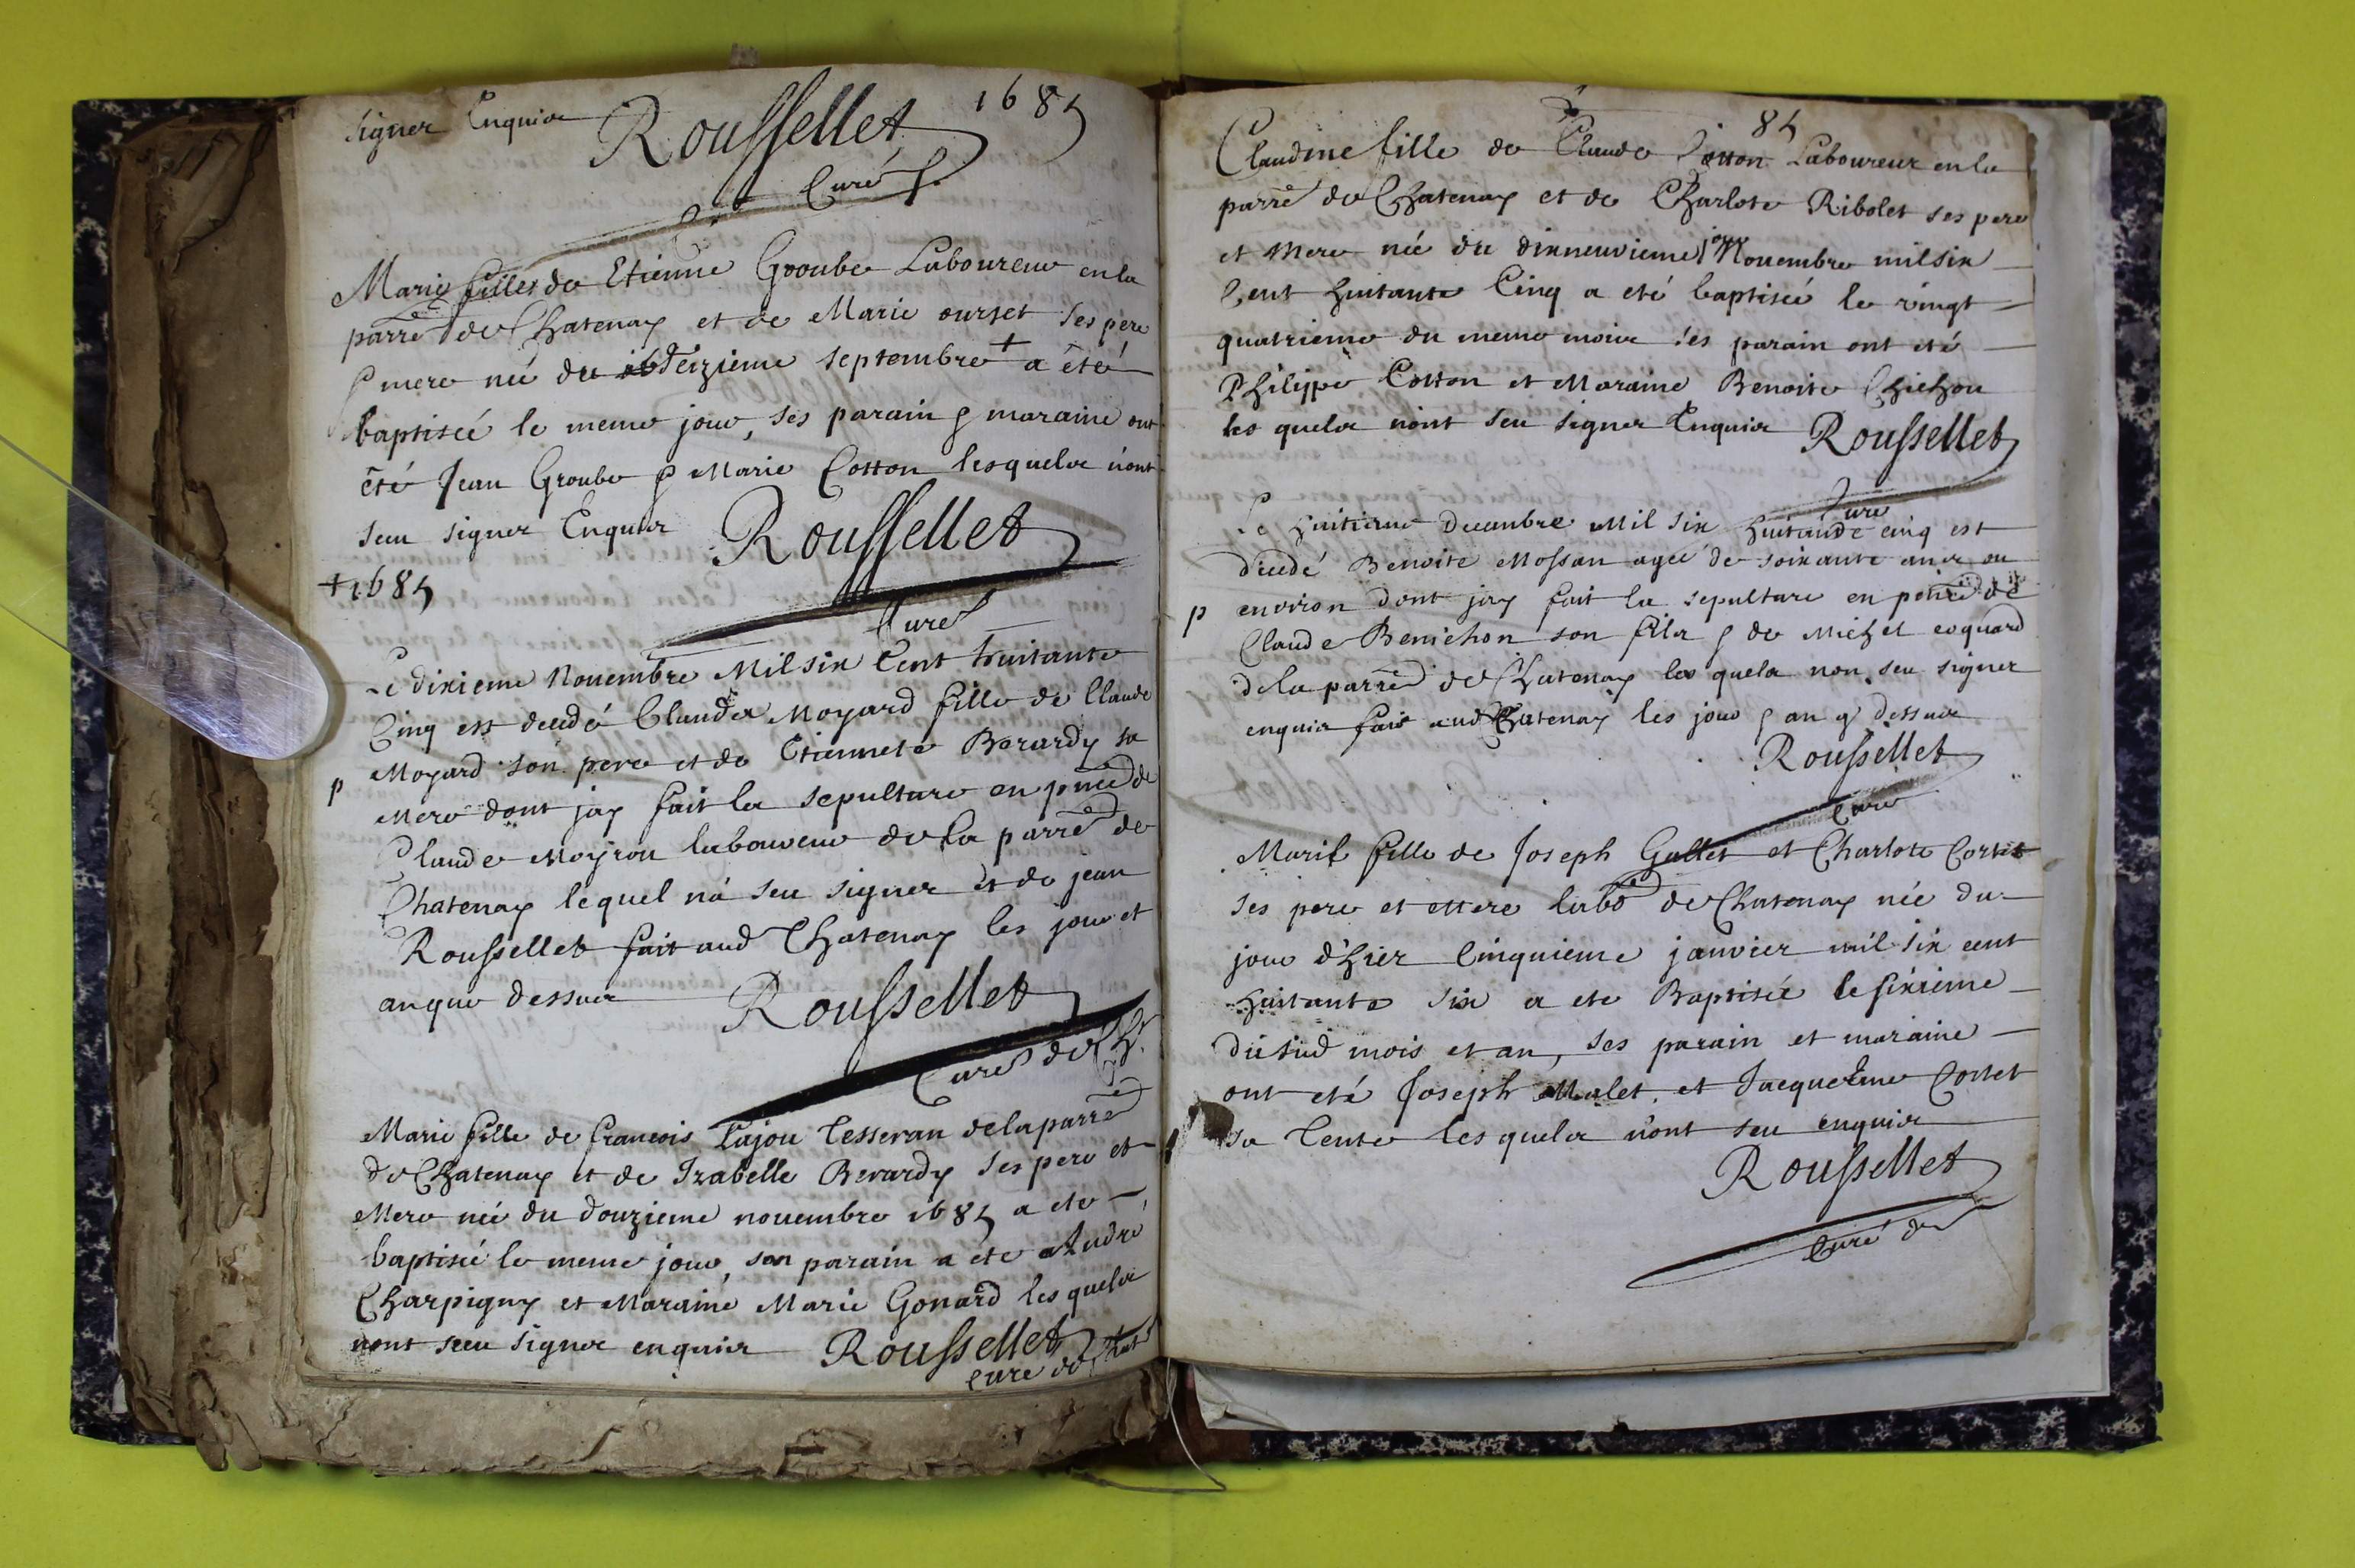 signer Enquis Roussellet 1685
Curé
Marie fille de Etienne Groube Laboureur en la
parre de Chatenay et de Marie ourset ses pere
& mere née du seizieme septembre + a été
baptiseé le meme jour, ses parain & maraine ont
été Jean Groube & Marie Cotton lesquels nont
seu signer Enquis Roussellet
+1685
Curé
Le dixieme Novembre Mil six Cent huitante
Cinq est decedé Clauda Moyard fille de Claude
Moyard son pere et de Etiennete Berardy sa
p
Mere dont jay fait la sepulture en pnce de
Claude Moyrou laboureur de la parre de
Chatenay lequel na seu signer et de jean
Roussellet fait aud Chatenay les jour et
an que dessus Roussellet
Curé de Ch.
Marie fille de francois Lajou Tesseran de la parre
de Chatenay et de Izabelle Berardy ses pere et
Mere née du douzieme novembre 1685 a ete
baptiseé le meme jour, son parain a ete Andre
Charpigny et Maraine Marie Gonard les quels
nont seu signer enquis Roussellet
Curé de Chat
85
Claudine fille de Claude Cotton Laboureur en la
parre de Chatenay et de Charlote Ribolet ses pere
et Mere née du dixneuvieme jour Novembre mil six
Cent huitante Cinq a eté baptiseé le vingt
quatrieme du meme mois ses parain ont eté
Philippe Cotton et Maraine Benoite Chichon
les quels nont seu signer Enquis Roussellet
Curé
Le huitieme Decembre Mil six huitante cinq est
decedé Benoite Mossan ageé de soixante ans ou
p
environ dont jay fait la sepulture en pnce de
Claude Benichon son fils & de Michel coquard
de la parre de Chatenay les quels non seu signer
enquis fait aud Chatenay les jour & an q dessus
Roussellet
Curé
Marie fille de Joseph Gallet et Charlote Cortet
ses pere et Mere labo de Chatenay née du
jour d'hier Cinquieme janvier mil six cent
huitante six a ete Baptiseé le sixieme
du sud mois et an, ses parain et maraine
ont eté Joseph Malet et Jacqueme Cortet
sa Tente les quels n'ont seu enquis
Roussellet
Curé de